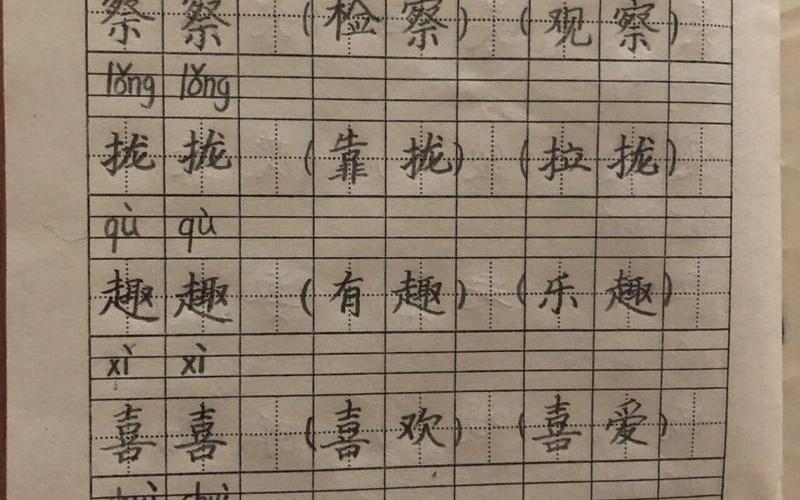 察 察 (检 察) (观 察)
lǒng lǒng
拢 拢 (靠 拢) (拉 拢)
qù qù
趣 趣 (有 趣) (乐 趣)
xì xì
喜 喜 (喜 欢) (喜 爱)